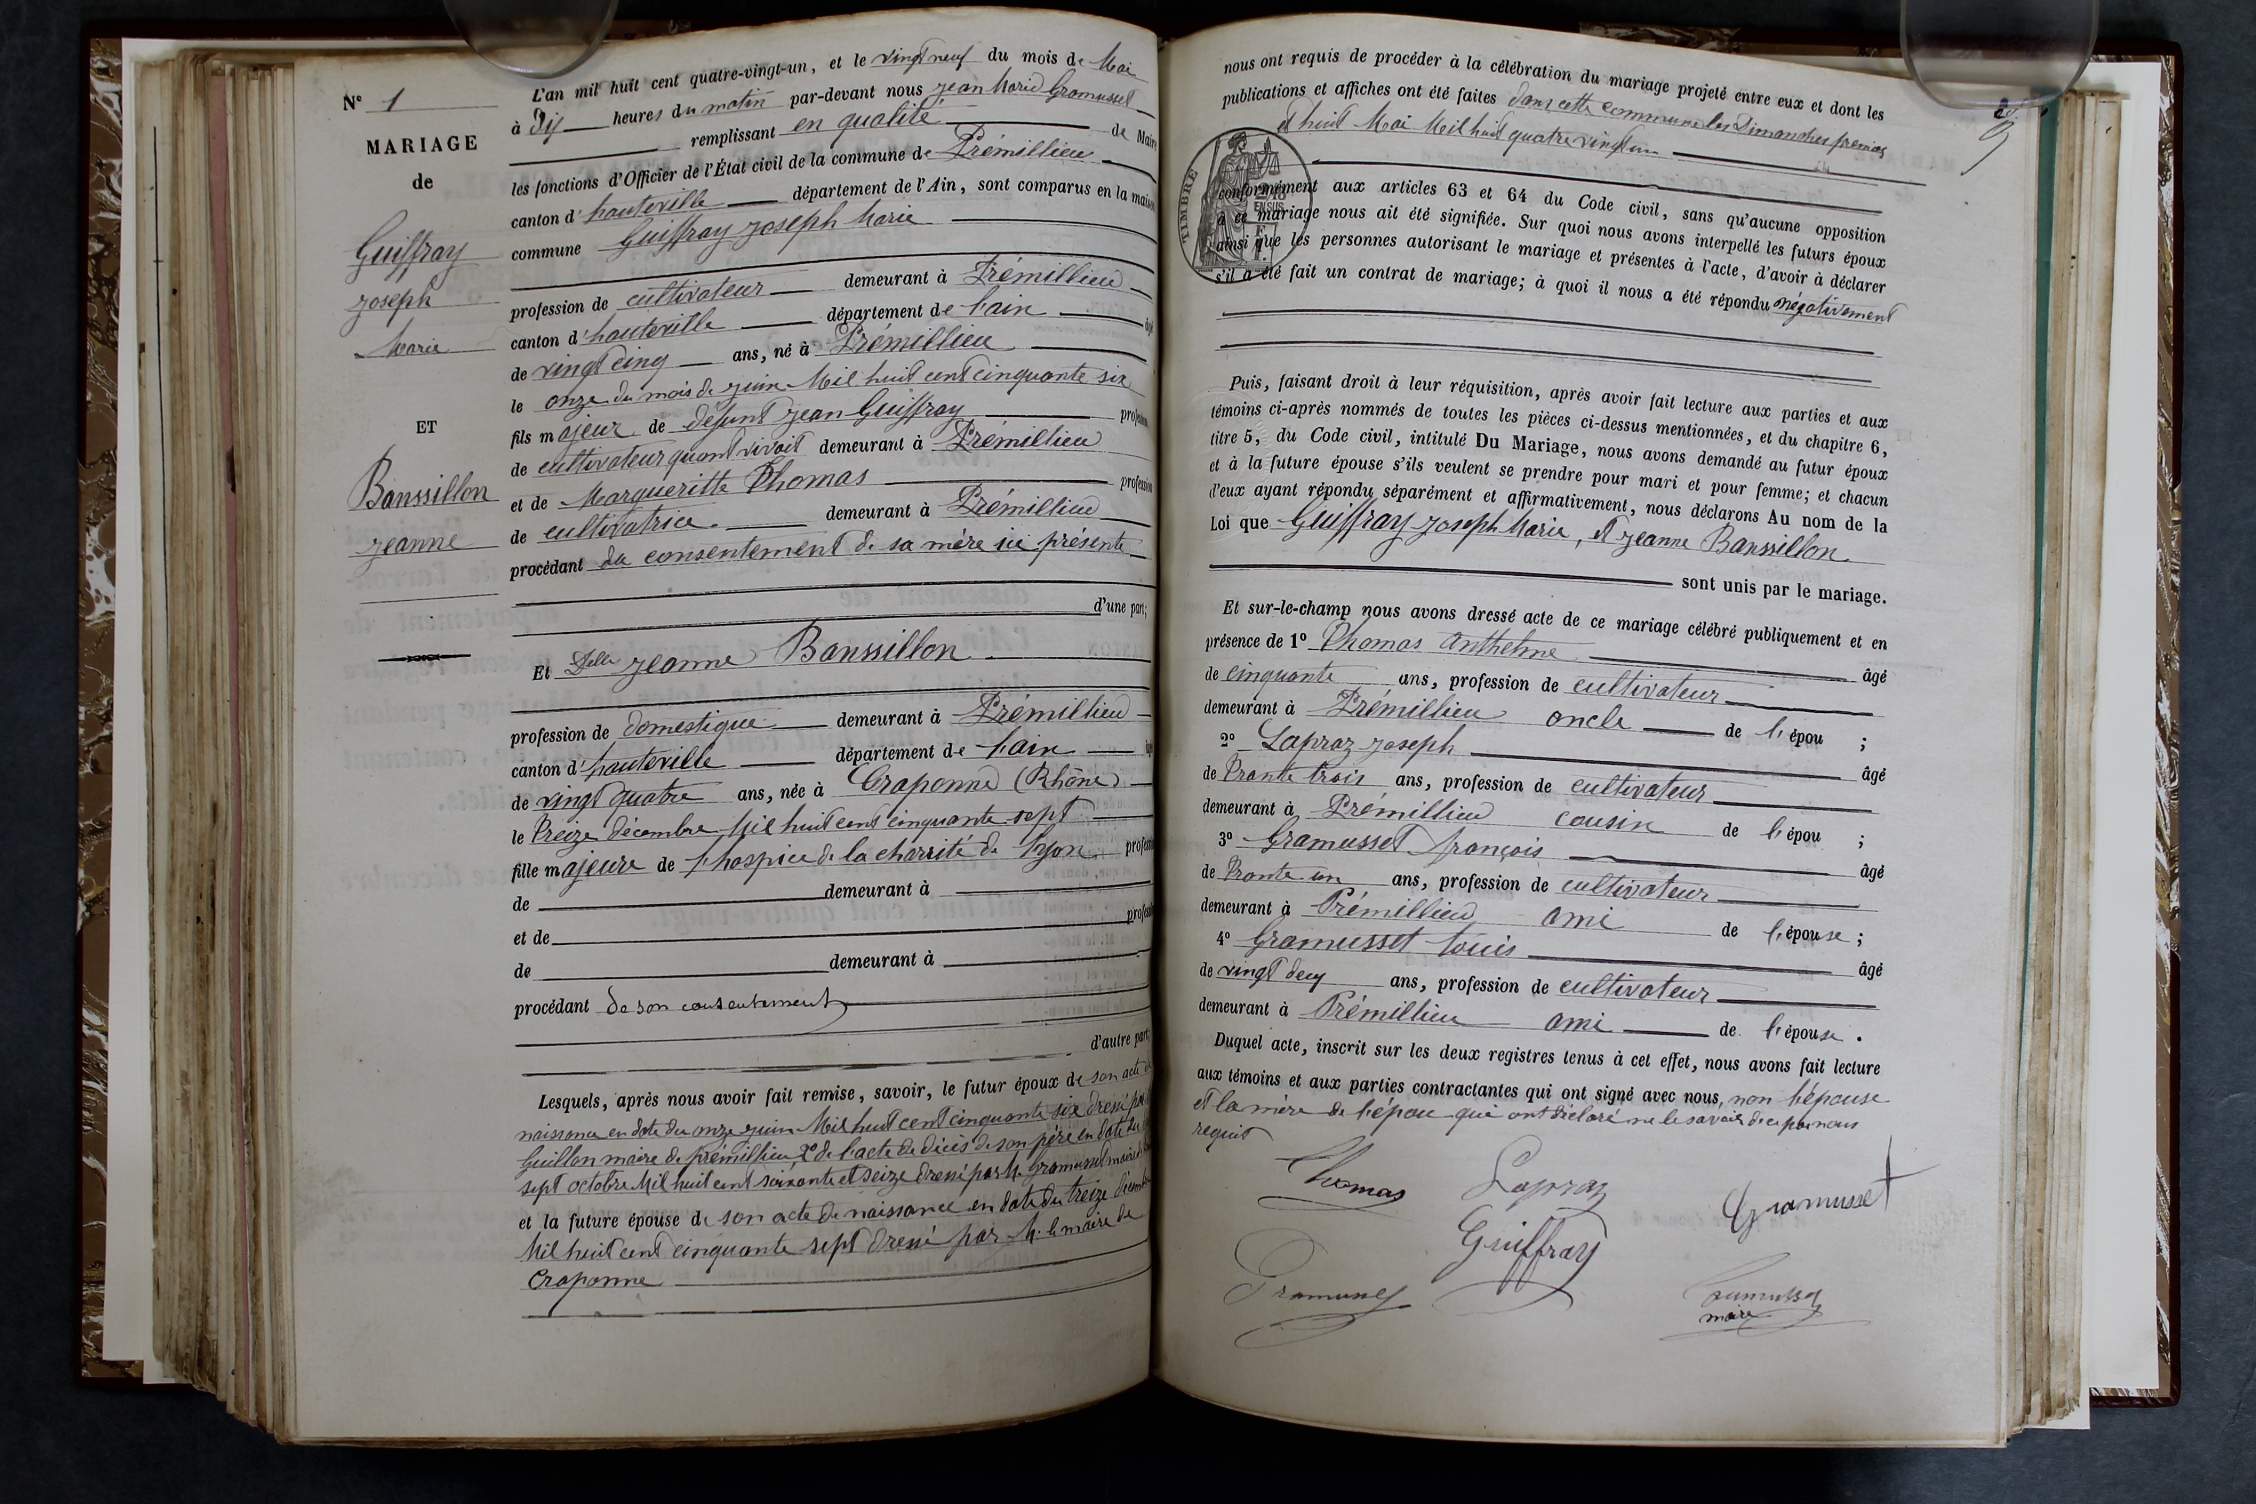 N° 1
MARIAGE
de
Guiffray
Joseph
Marie
ET
Banssillon
Jeanne
L'an mil huit cent quatre-vingt-un, et le vingt neuf du mois de Mai
à Dix heures du matin par-devant nous Jean Marie Gramusset
remplissant en qualité de Maire
les fonctions d'Officier de l'État civil de la commune de Prémillieu
canton d'hauteville département de l'Ain, sont comparus en la maison
commune Guiffray Joseph Marie
profession de cultivateur demeurant à Prémillieu
canton d'hauteville département de l'ain âgé
de vingt cinq ans, né à Prémillieu
le onze du mois de juin Mil huit cent cinquante six
fils majeur de défunt Jean Guiffray profession
de cultivateur quant vivait demeurant à Prémillieu
et de Margueritte Thomas profession
de cultivatrice demeurant à Prémillieu
procédant du consentement de sa mère ici présente
d'une part;
Et Delle Jeanne Banssillon
profession de domestique demeurant à Prémillieu
canton d'hauteville département de l'ain
de vingt quatre ans, née à Craponne (Rhône)
le treize décembre Mil huit cent cinquante sept
fille majeure de l'hospice de la charrité de Lyon profession
de demeurant à
et de profession
de demeurant à
procédant de son consentement
d'autre part,
Lesquels, après nous avoir fait remise, savoir, le futur époux de son acte de
naissance en date du onze juin Mil huit cent cinquante six dressé par
Guillon maire de prémillieu 2° de l'acte de décès de son père en date du
sept octobre Mil huit cent soixante et seize dressé par M. Gramusset maire
et la future épouse de son acte de naissance en date du treize décembre
Mil huit cent cinquante sept dressé par M. le maire de
Craponne
nous ont requis de procéder à la célébration du mariage projeté entre eux et dont les
publications et affiches ont été faites dans cette commune les Dimanches premier
et huit Mai Mil huit quatre vingt un
TIMBRE
conformément aux articles 63 et 64 du Code civil, sans qu'aucune opposition
à ce mariage nous ait été signifiée. Sur quoi nous avons interpellé les futurs époux
ainsi que les personnes autorisant le mariage et présentes à l'acte, d'avoir à déclarer
s'il a été fait un contrat de mariage; à quoi il nous a été répondu négativement
Puis, faisant droit à leur réquisition, après avoir fait lecture aux parties et aux
témoins ci-après nommés de toutes les pièces ci-dessus mentionnées, et du chapitre 6,
titre 5, du Code civil, intitulé Du Mariage, nous avons demandé au futur époux
et à la future épouse s'ils veulent se prendre pour mari et pour femme; et chacun
d'eux ayant répondu séparément et affirmativement, nous déclarons Au nom de la
Loi que Guiffray Joseph Marie, et Jeanne Banssillon
sont unis par le mariage.
Et sur-le-champ nous avons dressé acte de ce mariage célébré publiquement et en
présence de 1° Thomas Anthelme âgé
de cinquante ans, profession de cultivateur
demeurant à Prémillieu oncle de l'épou ;
2° Lapraz Joseph âgé
de trante trois ans, profession de cultivateur
demeurant à Prémillieu cousin de l'épou ;
3° Gramusset françois âgé
de trante un ans, profession de cultivateur
demeurant à Prémillieu ami de l'épouse ;
4° Gramusset Louis âgé
de vingt deux ans, profession de cultivateur
demeurant à Prémillieu ami de l'épouse .
Duquel acte, inscrit sur les deux registres tenus à cet effet, nous avons fait lecture
aux témoins et aux parties contractantes qui ont signé avec nous, non l'épouse
et la mère de l'épou qui ont déclaré ne le savoir de ce par nous
requit
Thomas Lapraz Gramusset
Guiffray
Gramusset
maire